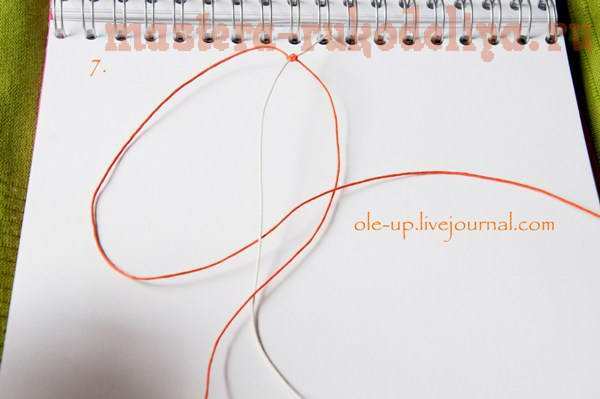 mastera-rukodeliya.ru
7.
ole-up.livejournal.com